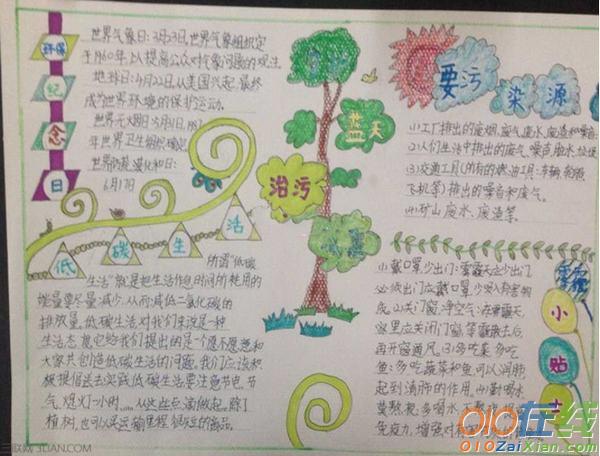 环保
纪
念
日
世界气象日:3月23日,世界气象组织定
于1960年,以提高公众对气象问题的观注。
地球日:4月22日,从美国兴起,最终
成为世界环境的保护运动。
世界无烟日:5月31日,1987
年世界卫生组织确定
日:
6月17日
低 碳 生 活
所谓“低碳
生活”就是把生活作息时间所耗用的
能量要尽量减少,从而减低二氧化碳的
排放量。低碳生活对我们来说是一种
生活态
大家共创造低碳生活的问题。我们应该积
极提倡 去实践低碳生活,要注意节电、节
气、熄灯一小时……从这些点滴做起。除了
植树,
蓝天
治污
主要污
染源
(1)工厂排出的废烟、废气、废水、废渣和噪音
(2)人们生活中排出的废气、噪音、脏水、垃圾
(3)交通工具(所有的燃油工具:车辆、轮船、
飞机等)排出的噪音和废气。
(4)矿山废水、废渣等。
雾霾
小
贴
士
(1)戴口罩,少出门:雾霾天应少出门
必须出门应戴口罩,少吸入有害物
质。(2)关门窗,净空气:在雾霾天,
这里应关闭门窗,等雾霾散去后
再开窗通风。(3)多吃菜,多吃
鱼:多吃蔬菜和鱼可以润肺
起到清肺的作用。(4)勤喝水
免疫力,增强对
三联网 3LIAN.COM
010在线
010ZaiXian.com